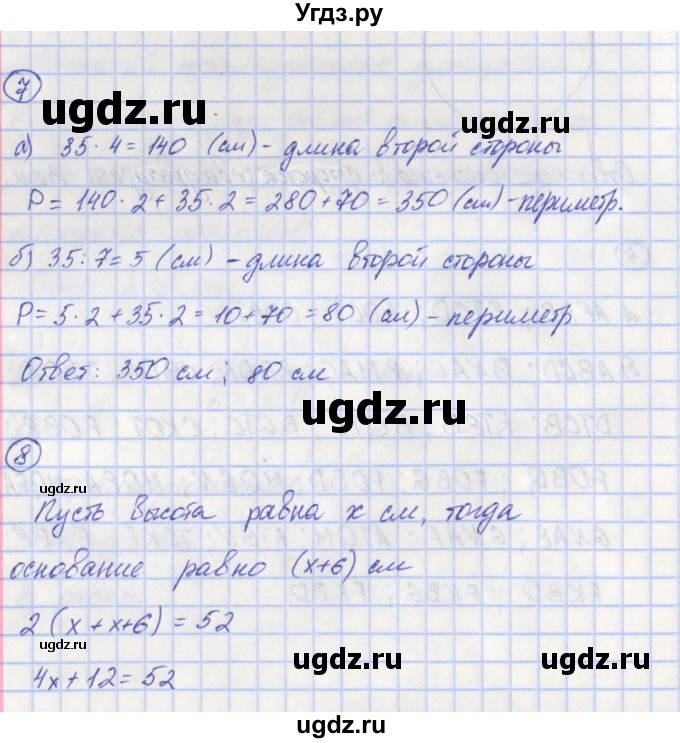 Угдз.ру
7
ugdz.ru
ugdz.ru
а) 35·4=140 (см) - длина второй стороны
P = 140·2 + 35·2 = 280+70 = 350 (см) - периметр.
б) 35:7=5 (см) - длина второй стороны
P= 5·2 + 35·2 = 10+70 = 80 (см) - периметр
Ответ: 350 см; 80 см
ugdz.ru
8
ugdz.ru
Пусть высота равна x см, тогда
основание равно (x+6) см
2 (x + x+6) = 52
ugdz.ru
ugdz.ru
4x+12=52
ugdz.ru